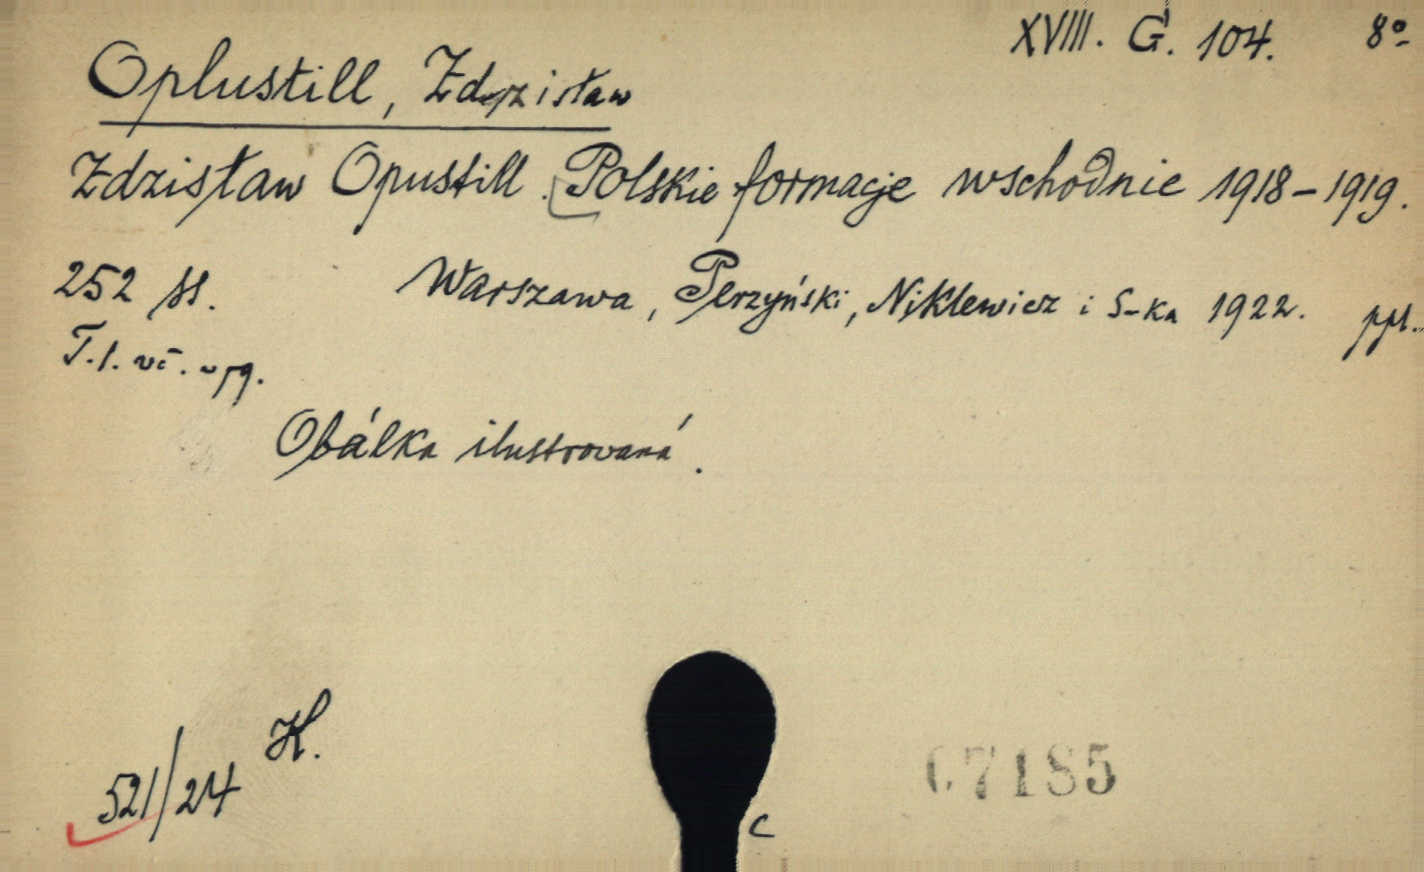 XVIII. G. 104. 8º
Oplustill, Zdzisław
Zdzisław Opustill. Polskie formacje wschodnie 1918-1919.
252 ss. Warszawa, Perzyński, Niklewicz i S-ka 1922. ppl.
T. l.
Obálka ilustrovaná.
521/24 H.
C
07185